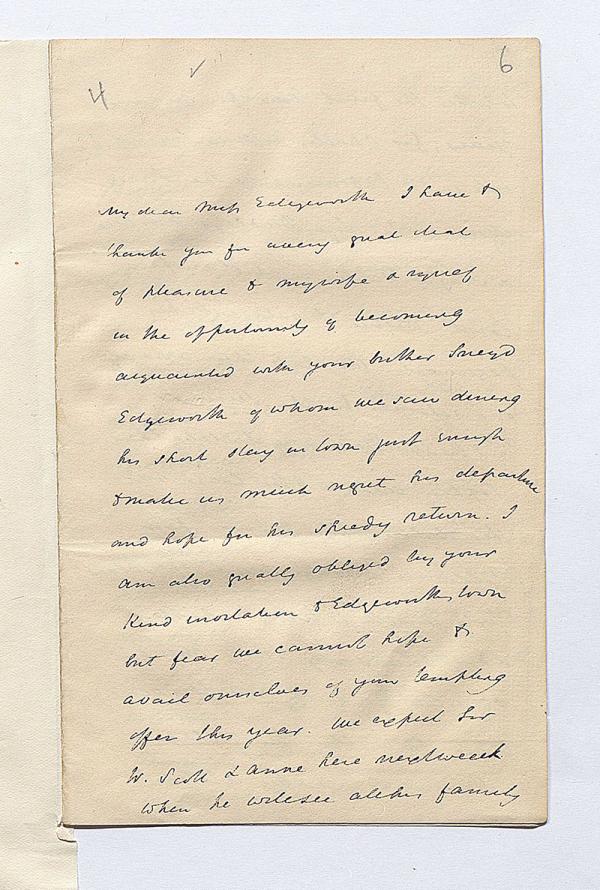 4 ✓ 6
My dear Miss Edgeworth I have to
thank you for a very great deal
of pleasure to my wife & myself
in the opportunity of becoming
acquainted with your brother Sneyd
Edgeworth of whom we saw during
his short stay in town just enough
to make us much regret his departure
and hope for his speedy return. I
am also greatly obliged by your
Kind invitation to Edgeworths town
but fear we cannot hope to
avail ourselves of your tempting
offer this year. We expect Sir
W. Scott & Anne here next week
when he will see all his family